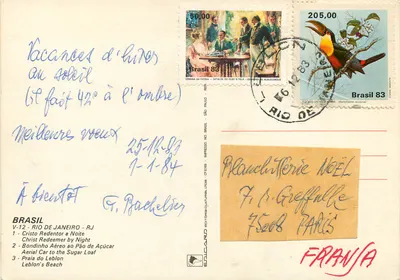 Vacances d'hiver
au soleil
(il fait 42° à l'ombre)
Meilleurs voeux
25-12-83
1-1-84
À bientot
G. Bachelier
BRASIL
V-12 - RIO DE JANEIRO - RJ
1 - Cristo Redentor a Noite
Christ Redeemer by Night
2 - Bondinho Aéreo ao Pão de Açúcar
Aerial Car to the Sugar Loaf
3 - Praia do Leblon
Leblon's Beach
50,00
Brasil 83
205,00
Brasil 83
RIO DE JANEIRO
Blanche Marie NOËL
7. R. Greffulhe
75008 PARIS
FRANSA